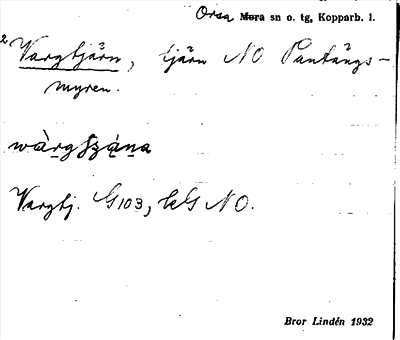 Orsa Mora sn o. tg, Kopparb. l.
2 Vargtjärn, tjärn NO Pantängs-
myren.
Vargtj. G103, kG NO.
Bror Lindén 1932